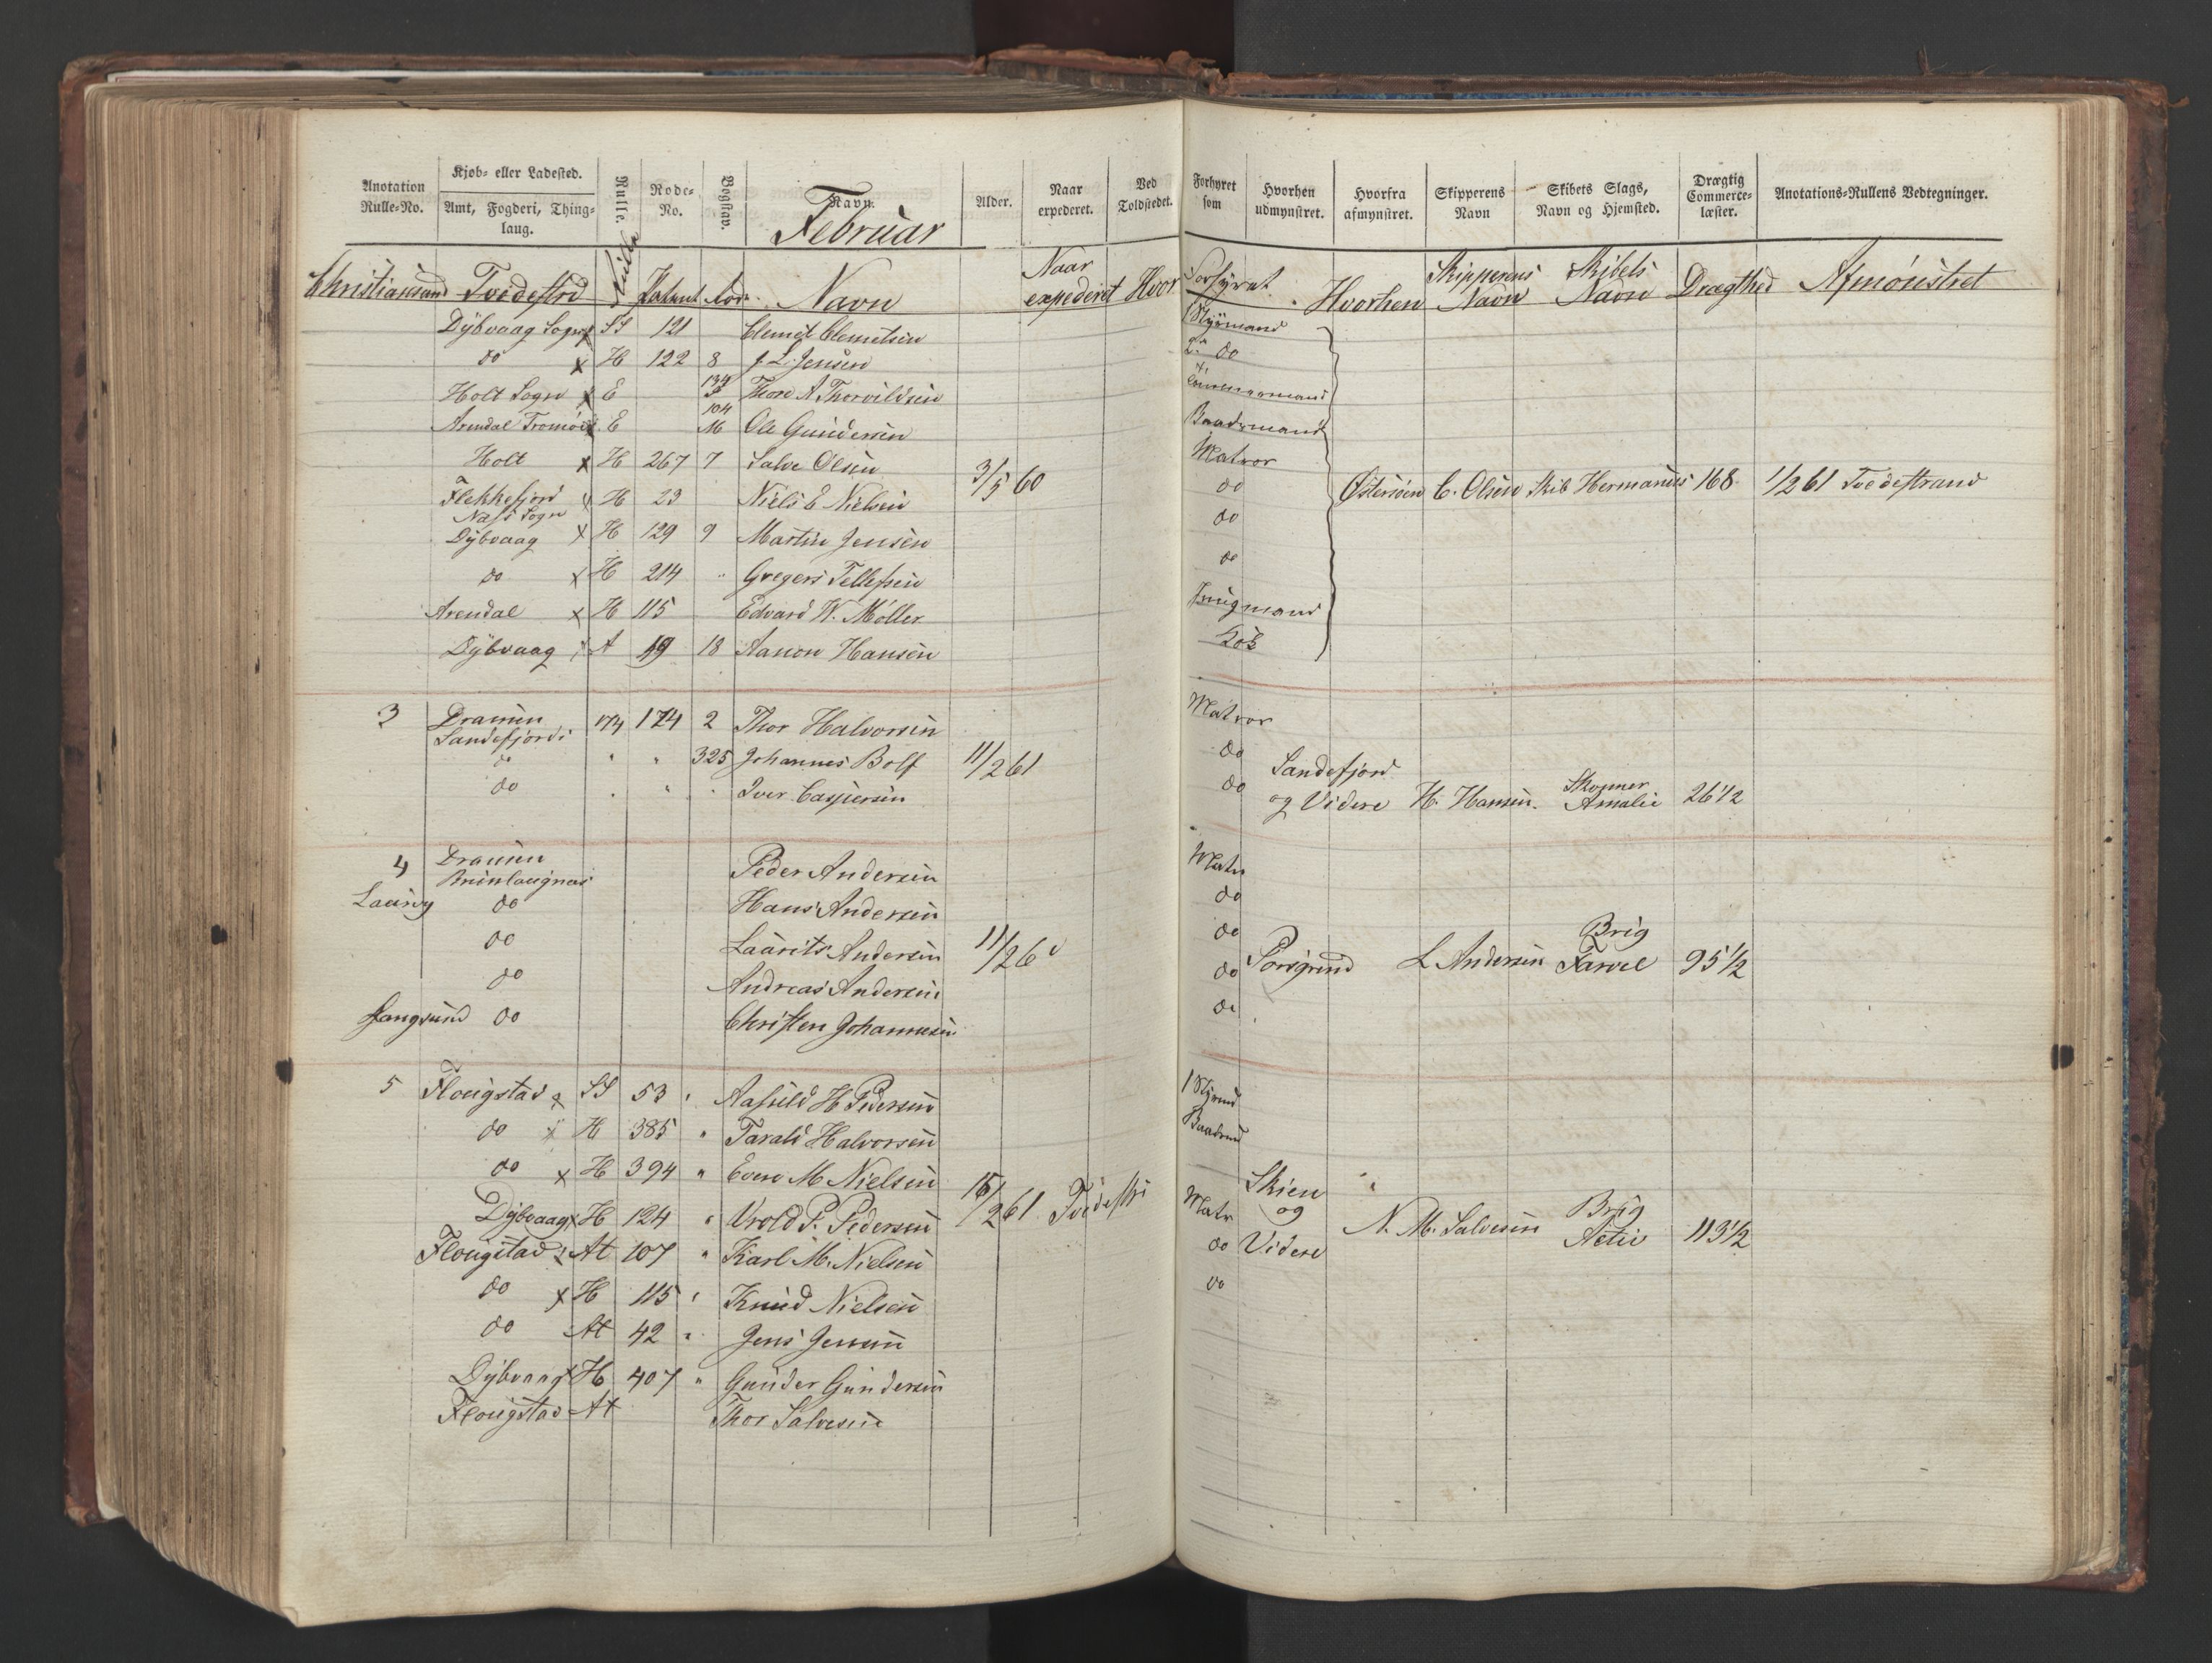 Anotation Rulle-No. | Kjøb- eller Ladested. Amt, Fogderi, Thinglaug. | Rulle. | Rode-No. | Bogstav. | Navn. | Alder. | Naar expederet. | Ved Toldstedet. | Forhyret som | Hvorhen udmynstret. | Hvorfra afmynstret. | Skipperens Navn | Skibets Slags, Navn og Hjemsted. | Drægtig Commerce-læster. | Anotations-Rullens Vedtegninger.
Februar
Christiansand Tvedestrd Rulle Navn Naar expederet Hvor Forhyret Hvorhen Skipperens Navn Skibets Navn Drægthed Afmönstret
Dÿbvaag Sogn x SS 121 Clemet Clemetsen 1 Styrmand
do x H 122 8 J. L. Jensen 2. do
Holt Sogn x E 134 Thore A Thorvildsen Tömmermand
Arendal Tromöe x E 104 M Ole Gundersen Baadsmand
Holt x H 267 7 Salve Olsen Matros
Flekkefjord Næs Sogn x H 23 Niels E Nielsen 3/5 60 do Østersöen C. Olsen Skib Hermanus 168 1/2 61 Tvedestrand
Dÿbvaag x H 129 9 Martin Jensen do
do x H 214 " Gregers Tellefsen do
Arendal x H 115 Edvard W. Möller Jungmand
Dÿbvaag A 19 18 Aanon Hansen Kok
3 Dramen Sandefjord 174 2 Thor Halvorsen Matros
do " " 325 Johannes Bolf 11/2 61 do Sandefjord
do " " " Iver Caspersen do og Videre H. Hansen Skonner Amalie 26 1/2
4 Dramen Brunlaugnæs Peder Andersen Matr
Laurvg do Hans Andersen do
do Laurits Andersen 11/2 6 do Porsgrund L Andersen Brig Farvel 95 1/2
do Andreas Andersen do
Langsund do Christen Johannesen do
5 Flougstad x SS 53 " Aasuld H Pedersen 1 Styrmd
do x H 385 " Tarald Halvorsen Baadsmd
do x H 394 " Even M Nielsen 15/2 61 Tvedestr Skien
Dÿbvaag x H 124 " Vrold P. Pedersen Matr og N. M. Salvesen Brig Activ 113 1/2
Flougstad At 107 " Karl M. Nielsen do Videre
do x H 115 " Knud Nielsen do
do At 42 " Jens Jensen
Dÿbvaag x H 407 " Gunder Gundersen
Flougstad At Thor Salvesen